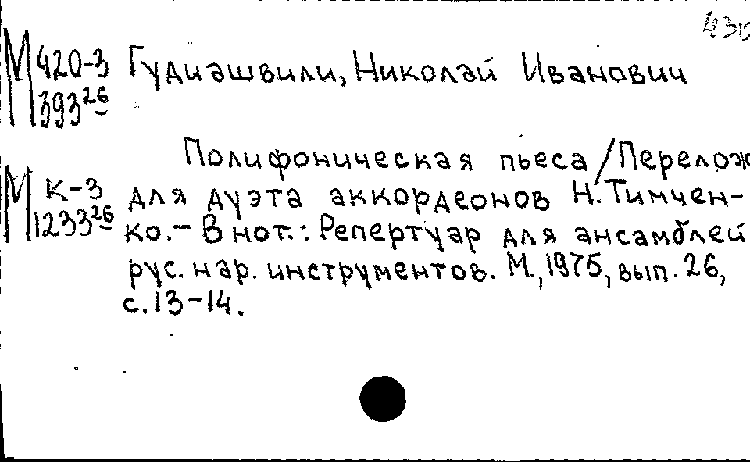 М 420-3 Гудиашвили, Николай Иванович
393 26
Полифоническая пьеса / Перелож
М К-3 для дуэта аккордеонов Н. Тимчен-
1233 26 ко. – В нот.: Репертуар для ансамблей
рус. нар. инструментов. М., 1975, вып. 26,
с. 13-14.